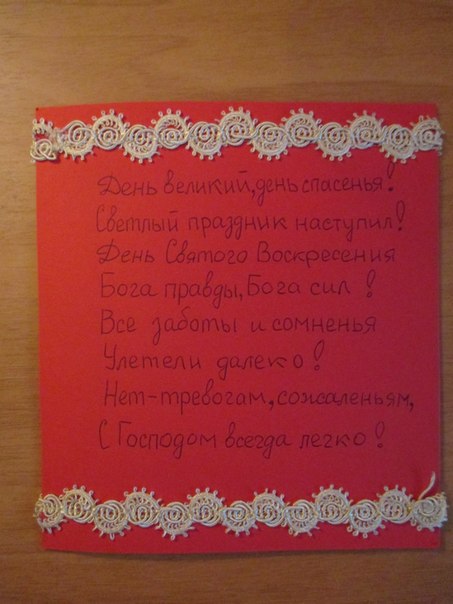 День великий, день спасенья!
Светлый праздник наступил!
День Святого Воскресения
Бога правды, Бога сил!
Все заботы и сомненья
Улетели далеко!
Нет-тревогам, сожаленьям,
С Господом всегда легко!